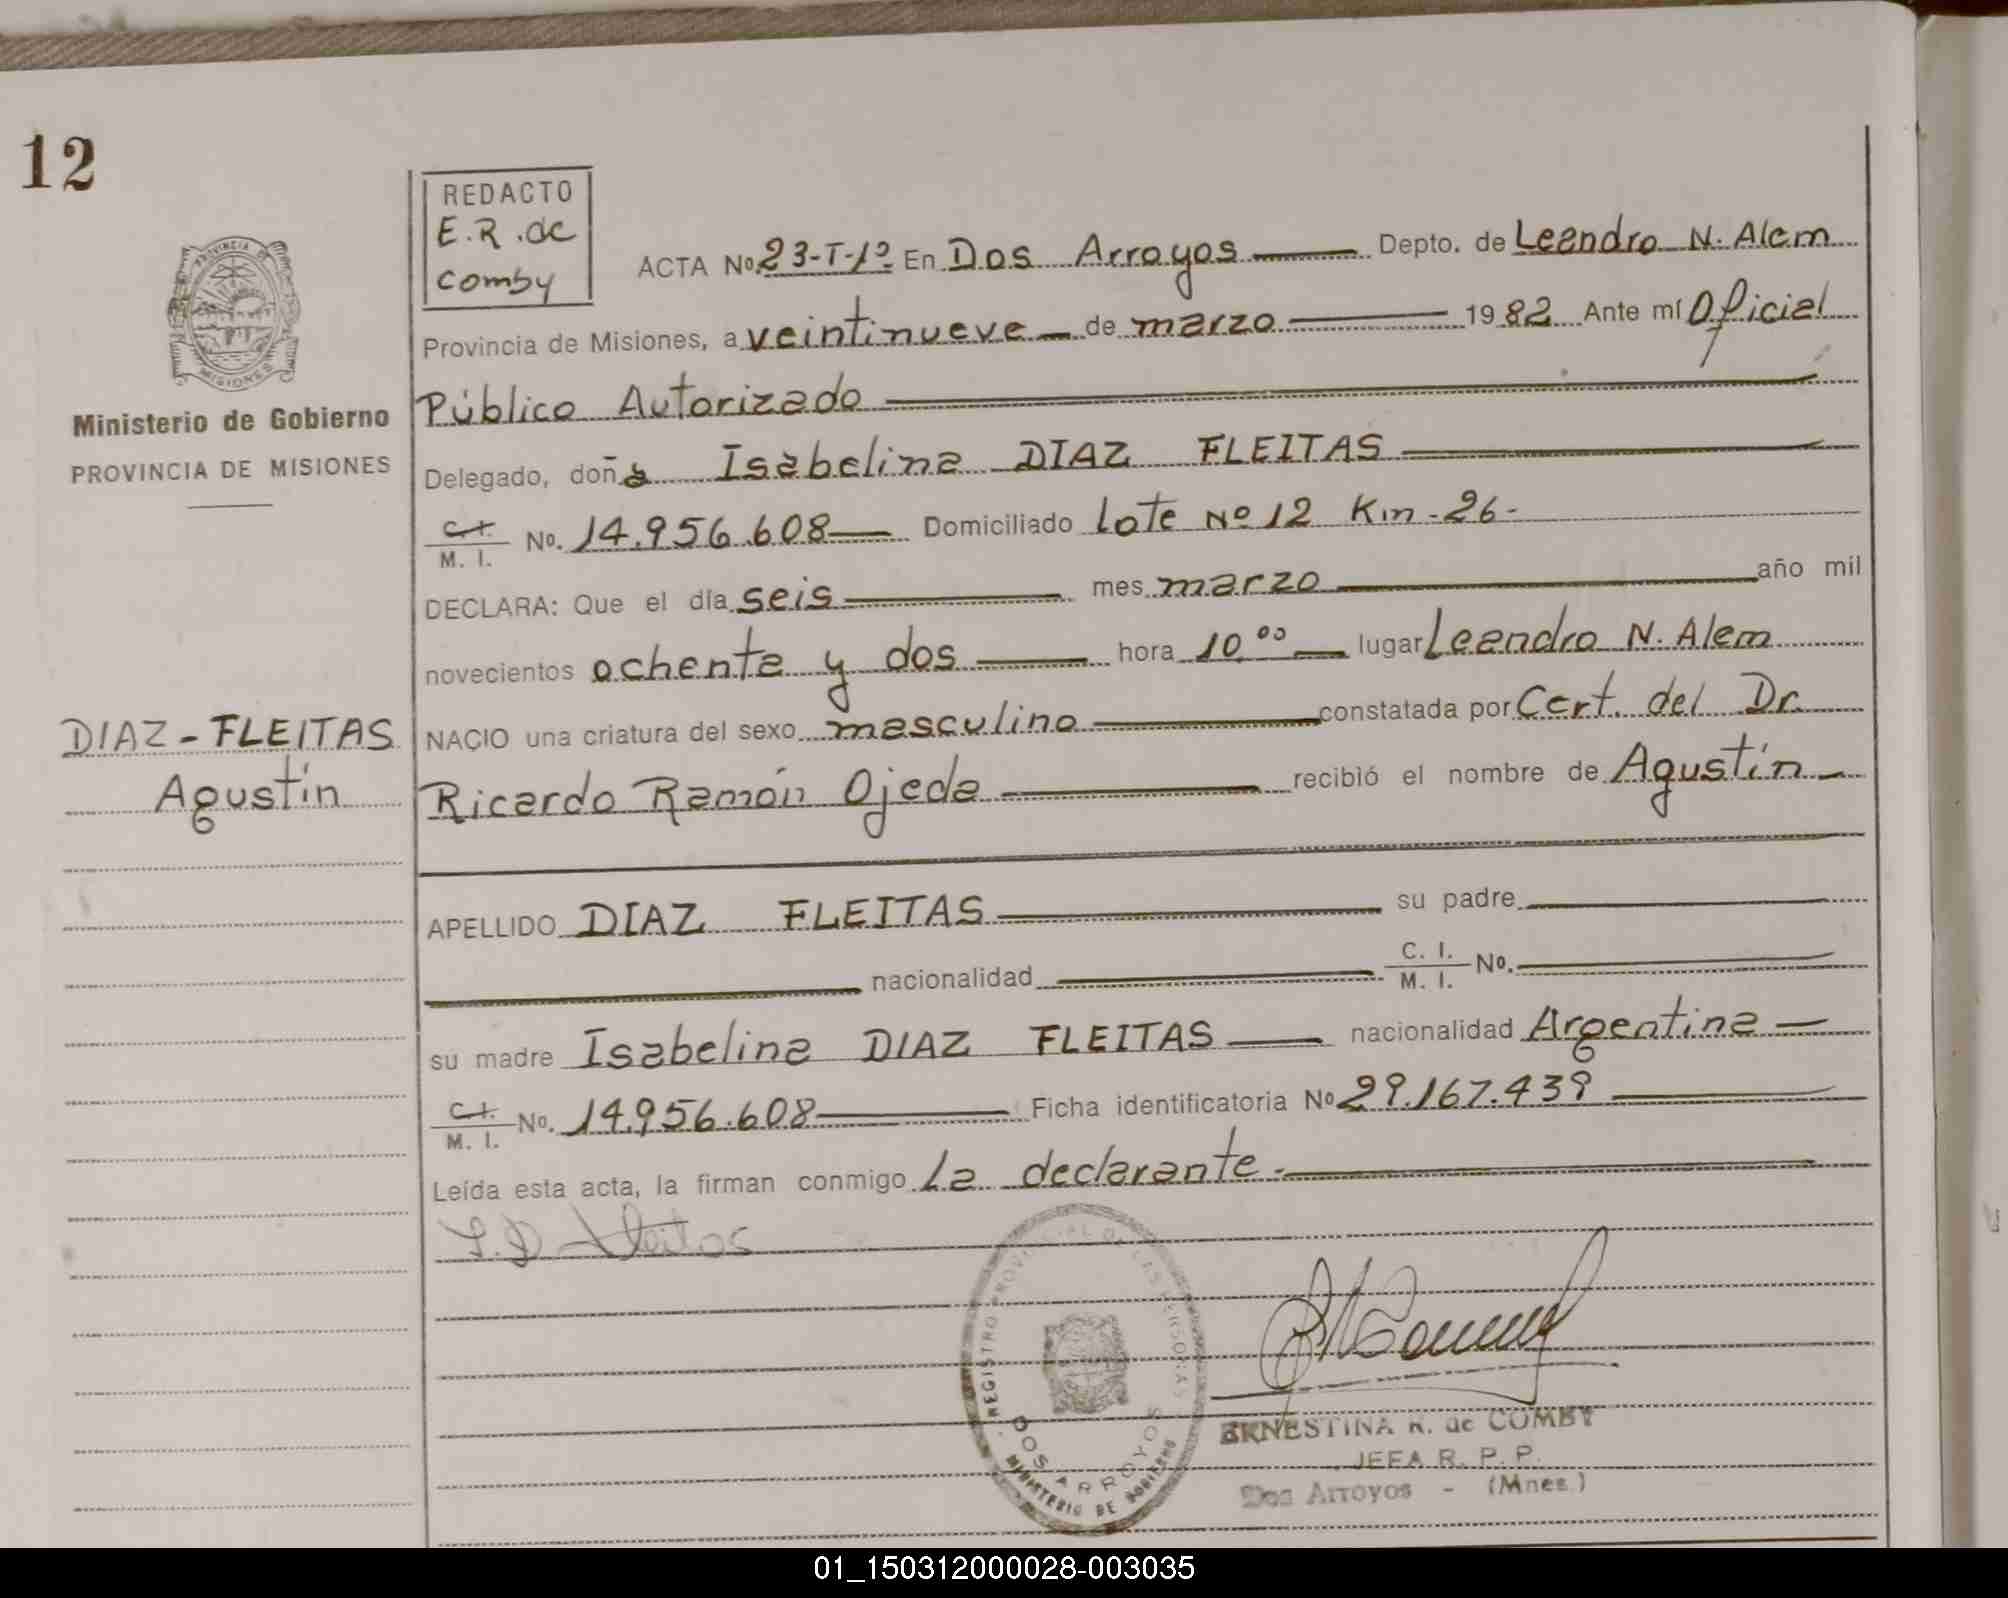 12
PROVINCIA DE
MISIONES
Ministerio de Gobierno
PROVINCIA DE MISIONES
DIAZ-FLEITAS
Agustín
REDACTO
E.R. de
Comby
ACTA No. 23-T-1º En Dos Arroyos Depto. de Leandro N. Alem
Provincia de Misiones, a veintinueve de marzo 1982 Ante mí Oficial
Público Autorizado
Delegado, doña Isabelina DIAZ FLEITAS
C.I.
M. I. No. 14.956.608 Domiciliado Lote Nº 12 Km-26-
DECLARA: Que el día seis mes marzo año mil
novecientos ochenta y dos hora 10,00 lugar Leandro N. Alem
NACIO una criatura del sexo masculino constatada por Cert. del Dr.
Ricardo Ramón Ojeda recibió el nombre de Agustín
APELLIDO DIAZ FLEITAS su padre
nacionalidad C. I.
M. I. No.
su madre Isabelina DIAZ FLEITAS nacionalidad Argentina
C.I.
M. I. No. 14.956.608 Ficha identificatoria No 29.167.439
Leída esta acta, la firman conmigo la declarante.
I.D Fleitas
REGISTRO PROVINCIAL DE LAS PERSONAS
DOS ARROYOS
MINISTERIO DE GOBIERNO
ERNESTINA R. de COMBY
JEFA R. P. P.
Dos Arroyos - (Mnes.)
01_150312000028-003035